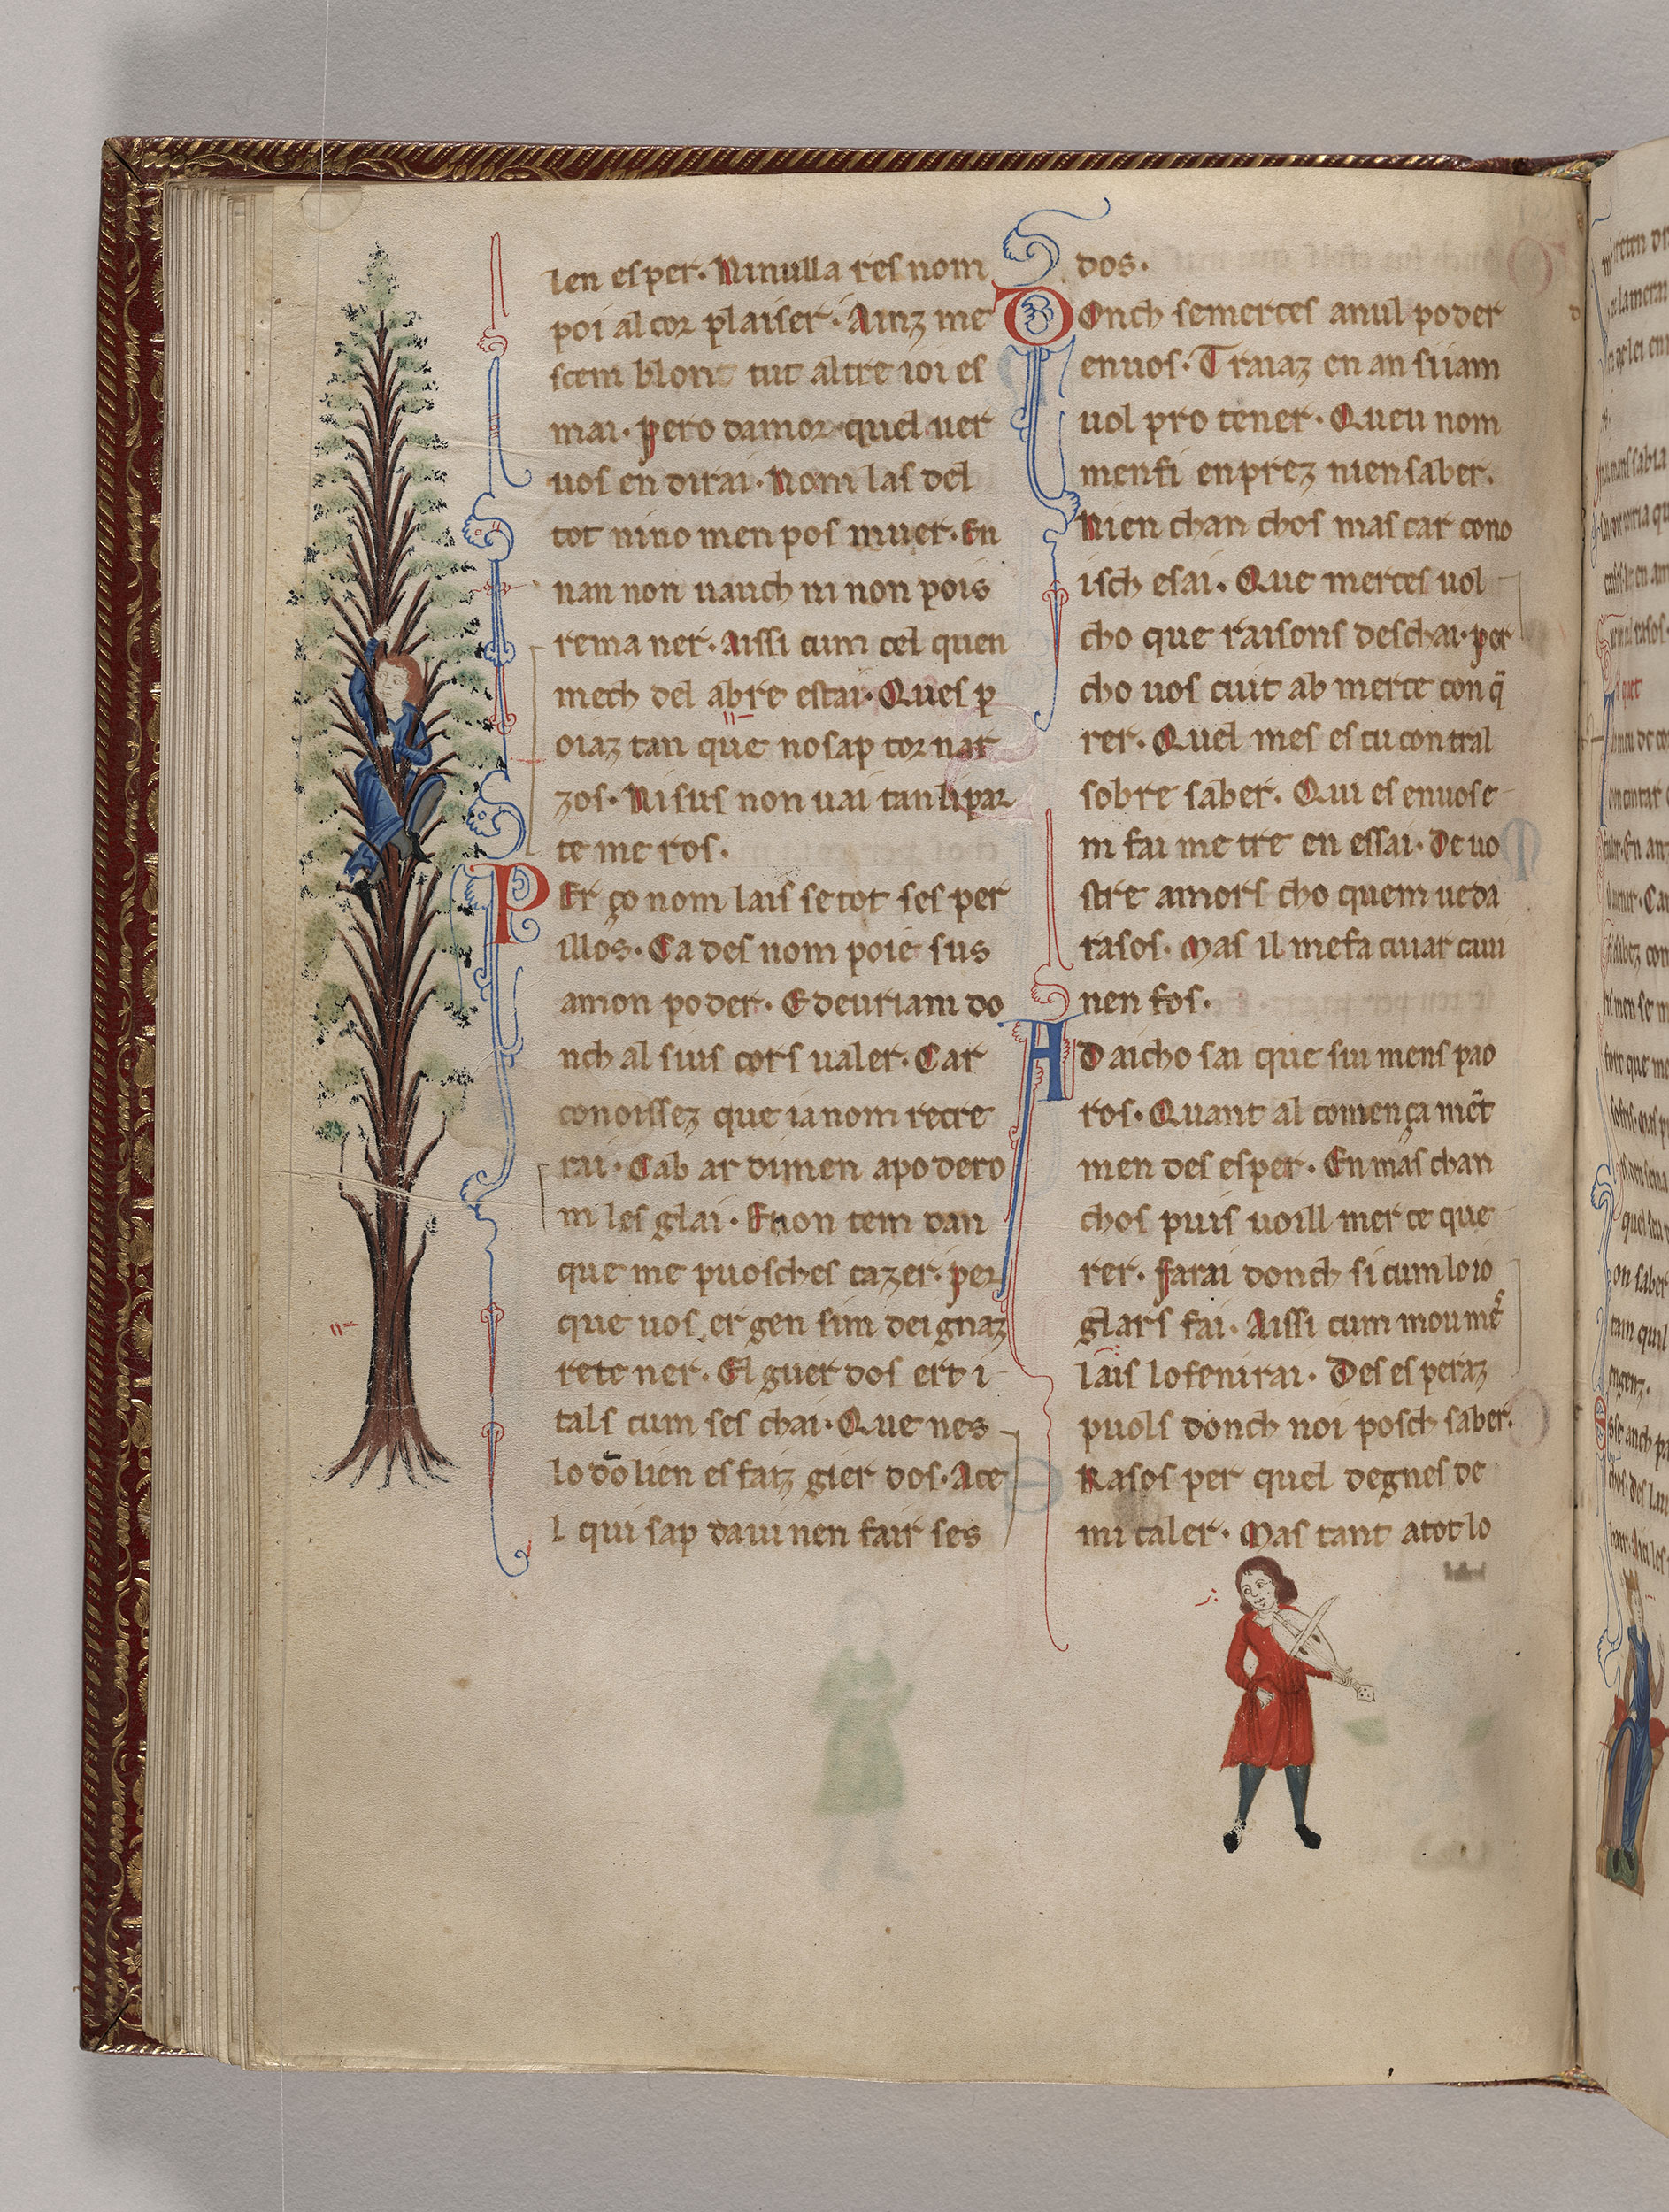 len esper. Ninulla res nom
poi al cor plaiser. Ainz me
scem blont tut altre ioi es
mai. pero damor quel uer
uos en dirai. Nom las del
tot nino men pos muer. En
nan non uauch ni non pois
rema ner. Aissi cum cel quen
mech del abre estai. Ques p
oiaz tan que nosap tornar
zos. Ni sus non uai tan li par
te me ros.
PEr ço nom lais se tot ses per
illos. Ca des nom poie sus
amon poder. E deuriam do
nch al suis cors ualer. Car
conoissez que ia nom recre
rai. Cab ar dimen apo dero
m les glai. Enon tem dan
que me puosches cazer. per
que uos er gen sim deignaz
rete ner. El guer dos ert i
tals cum ses chai. Que nes
lo dō lien es faiz gier dos. Ace
l qui sap dauinen fair ses
dos.
DOnch semerces anul poder
enuos. Traiaz en an siiam
uol pro tener. Queu nom
menfi enprez nien saber.
Nien chan chos mas car cono
isch esai. Que merces uol
cho que raisons deschai. per
cho uos cuit ab merce con q̄
rer. Quel mes es cu con tral
sobre saber. Qui es enuos e
m fai me tre en essai. De uo
stre amors cho quem ueda
rasos. Mas il mefa cuiar caui
nen fos.
AD aicho sai que siu mens pao
ros. Quant al comença mēt
men des esper. En mas chan
chos puis uoill mer ce que
rer. farai donch si cum loio
glars fai. Aissi cum mou mē
lais lo fenirai. Des es peraz
puols donch noi posch saber.
Rasos per quel degnes de
mi caler. Mas tant atot lo